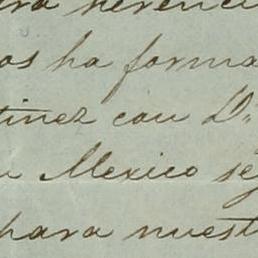 ra herenci
os ha forma
tinez con D.
n Mexico se
para nuest